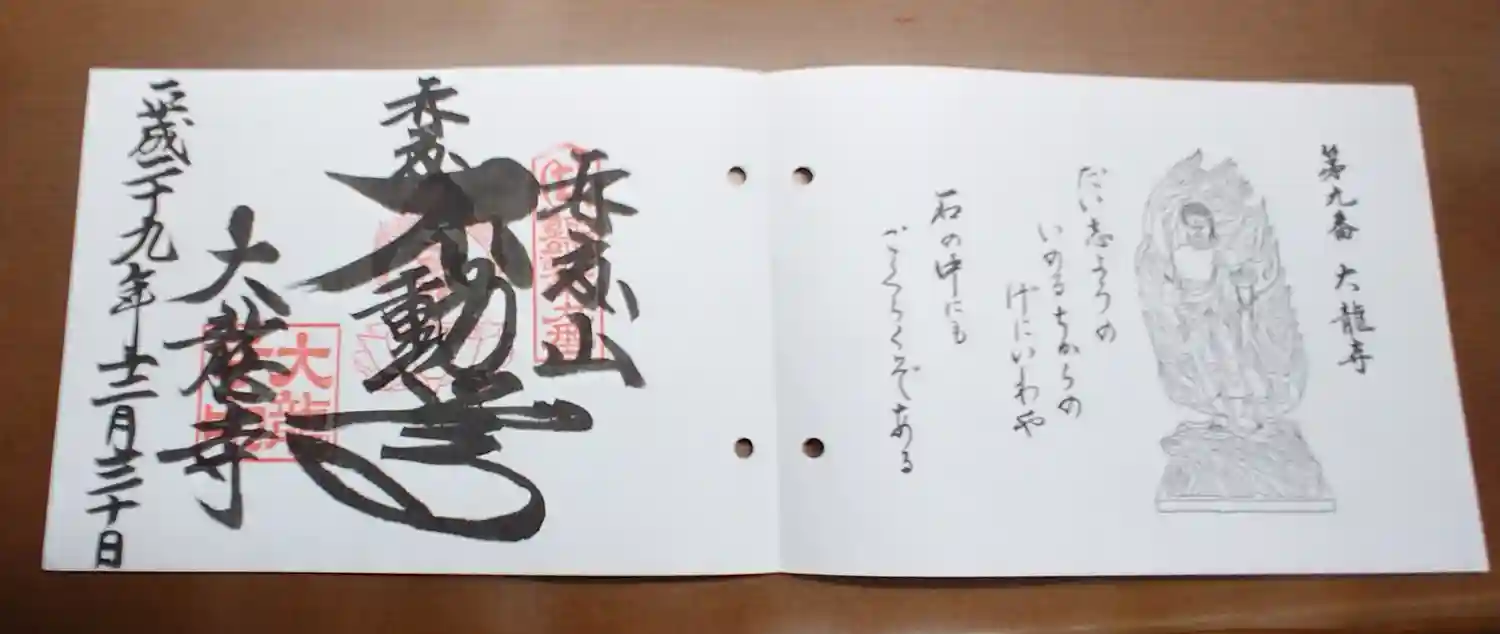 第九番 大龍寺
だい志ようの
いのるちからの
げにいわや
石の中にも
ごくらくぞある
再度山
再度
不動尊
大龍寺
平成二十九年十二月三十日